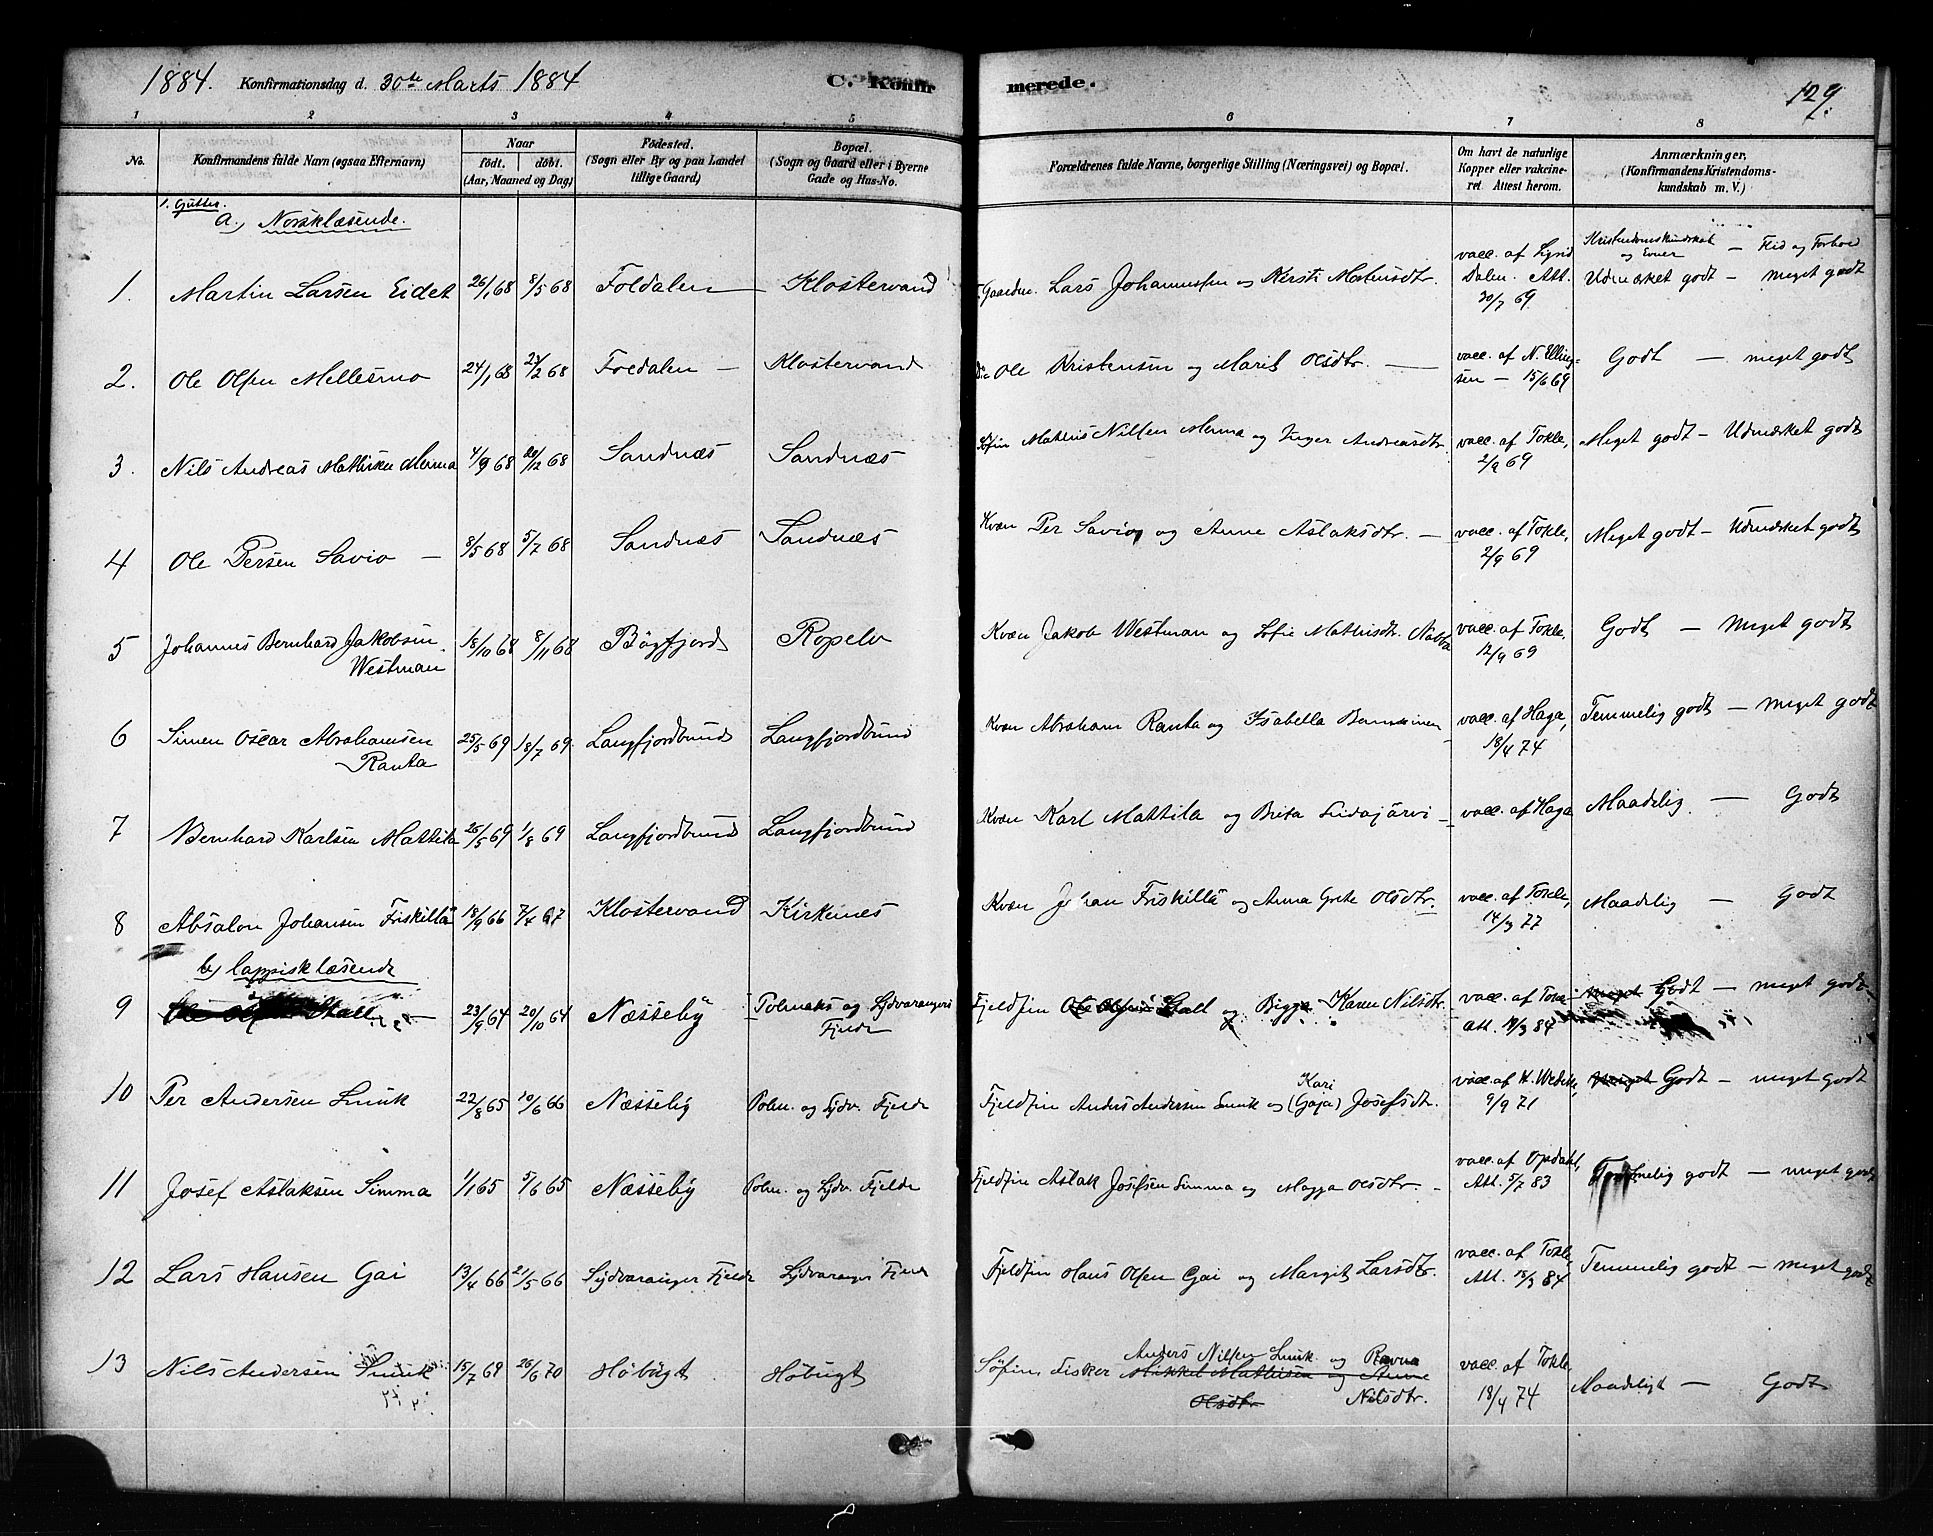 1884. Konfirmationsdag d. 30te Marts 1884 C. Konfirmerede. 129.
1 2 3 4 5 6 7 8
No. Konfirmandens fulde Navn (ogsaa Efternavn) Naar født. døbt. (Aar, Maaned og Dag) Fødested. (Sogn eller By og paa Landet tillige Gaard) Bopæl. (Sogn og Gaard eller i Byerne Gade og Hus-No. Forældrenes fulde Navne, borgerlige Stilling (Næringsvei) og Bopæl. Om havt de naturlige Kopper eller vakcineret. Attest herom. Anmærkninger. (Konfirmandens Kristendomskundskab m. V.)
1. Gutter.
a, Norsklæsende.
Kristendomskundskab og Evner — Flid og Forhold
1. Martin Larsen Eidet 26/1 68 8/5 68 Foldalen Klostervand Gaardm. Lars Johannessen og Kersti Mortensdtr. vacc. af Dalen. Att. 30/7 69. Udmærket godt — meget godt
2. Ole Olsen Mellesmo 24/1 68 23/2 68 Foldalen — Klostervand Do Ole Kristensen og Marit Olsdtr. — vacc. af N. Ellingsen — 15/6 69 Godt — meget godt
3. Nils Andreas Mathisen Menna 4/9 68 29/12 68 Sandnæs Sandnæs Søfin Mathis Nilsen Menna og Inger Andreasdtr. vacc. af Tokle, 2/9 69 Meget godt — Udmærket godt
4 Ole Persen Savio — 8/5 68 5/7 68 Sandnæs Sandnæs Kvæn Per Savio og Anne Aslaksdtr. — vacc. af Tokle, 2/9 69 Meget godt — Udmærket godt
5 Johannes Bernhard Jakobsen Westman 18/10 68 8/11 68 Bøgfjord Ropelv Kvæn Jakob Westman og Sofie Mathisdtr. Nabba vacc. af Tokle, 12/9 69 Godt — meget godt
6 Simen Oscar Abrahamsen Ranta 25/5 69 18/7 69 Langfjordbund Langfjordbund Kvæn Abraham Ranta og Isabella vacc. af Haga, 18/4 74 Temmelig godt — meget godt
7 Bernhard Karlsen Mattila 26/5 69 1/8 69 Langfjordbund Langfjordbund Kvæn Karl Mattila og Brita — vacc. af Haga Maadelig. — Godt
8 Absalon Johansen Friskillä 18/9 66 7/4 67 Klostervand Kirkenes Kvæn Johan Friskillä og Anna Grete Olsdtr. vacc. af Tokle, 14/3 77 Maadelig — Godt
b, lappisklæsende
9 Ole Olsen Stall — 23/9 64 20/10 64 Næsseby Polmaks og Sydvarangers Fjelde Fjeldfin Ole Olsen Stall og Bigga Karen Nilsdtr. vacc. af Att. 84 Meget Godt — meget godt
10 Per Andersen Smuk 22/8 65 10/6 66 Næsseby Polm. og Sydv. Fjelde Fjeldfin Anders Andersen Smuk og Kari (Gaja) Josefsdtr. vacc. af 9/9 71 Meget Godt — meget godt
11 Josef Aslaksen Simma 1/1 65 5/6 65 Næsseby Polm. og Sydv. Fjelde Fjeldfin Aslak Josefsen Simma og Magga Olsdtr. — vacc. af Opdahl, Att. 5/7 83 Temmelig godt — meget godt
12 Lars Hansen Gai 13/4 66 21/5 66 Sydvaranger Fjelde Sydvaranger Fjelde Fjeldfin Hans Olsen Gai og Margit Larsdtr. vacc. af Tokle, Att. 18/3 84 Temmelig godt — meget godt
13 Nils Andersen Smuk 15/7 69 26/6 70 Høbugt Høbugt Søfin Fisker Anders Nilsen Smuk og Ravna Mikkel Mathisen og Anne Olsdtr Nilsdtr. vacc. af Tokle, 18/4 74 Maadeligt — Godt